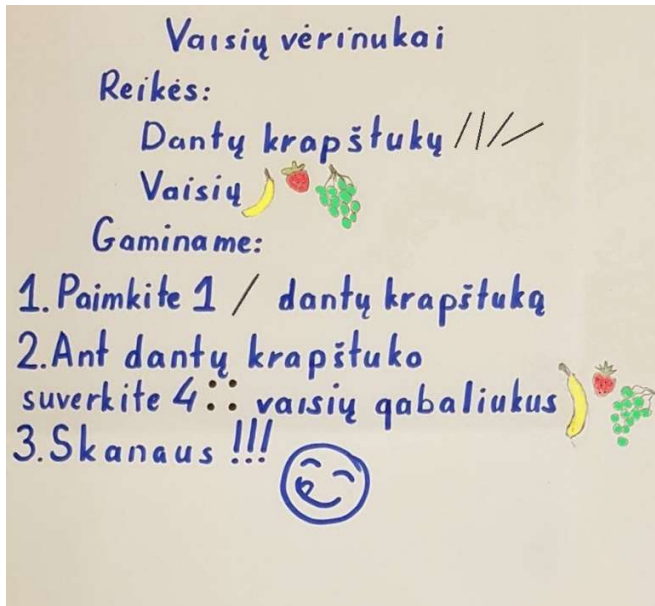 Vaisių vėrinukai
Reikės:
Dantų krapštukų
Vaisių
Gaminame:
1. Paimkite 1 dantų krapštuką
2. Ant dantų krapštuko
suverkite 4 vaisių gabaliukus
3. Skanaus !!!